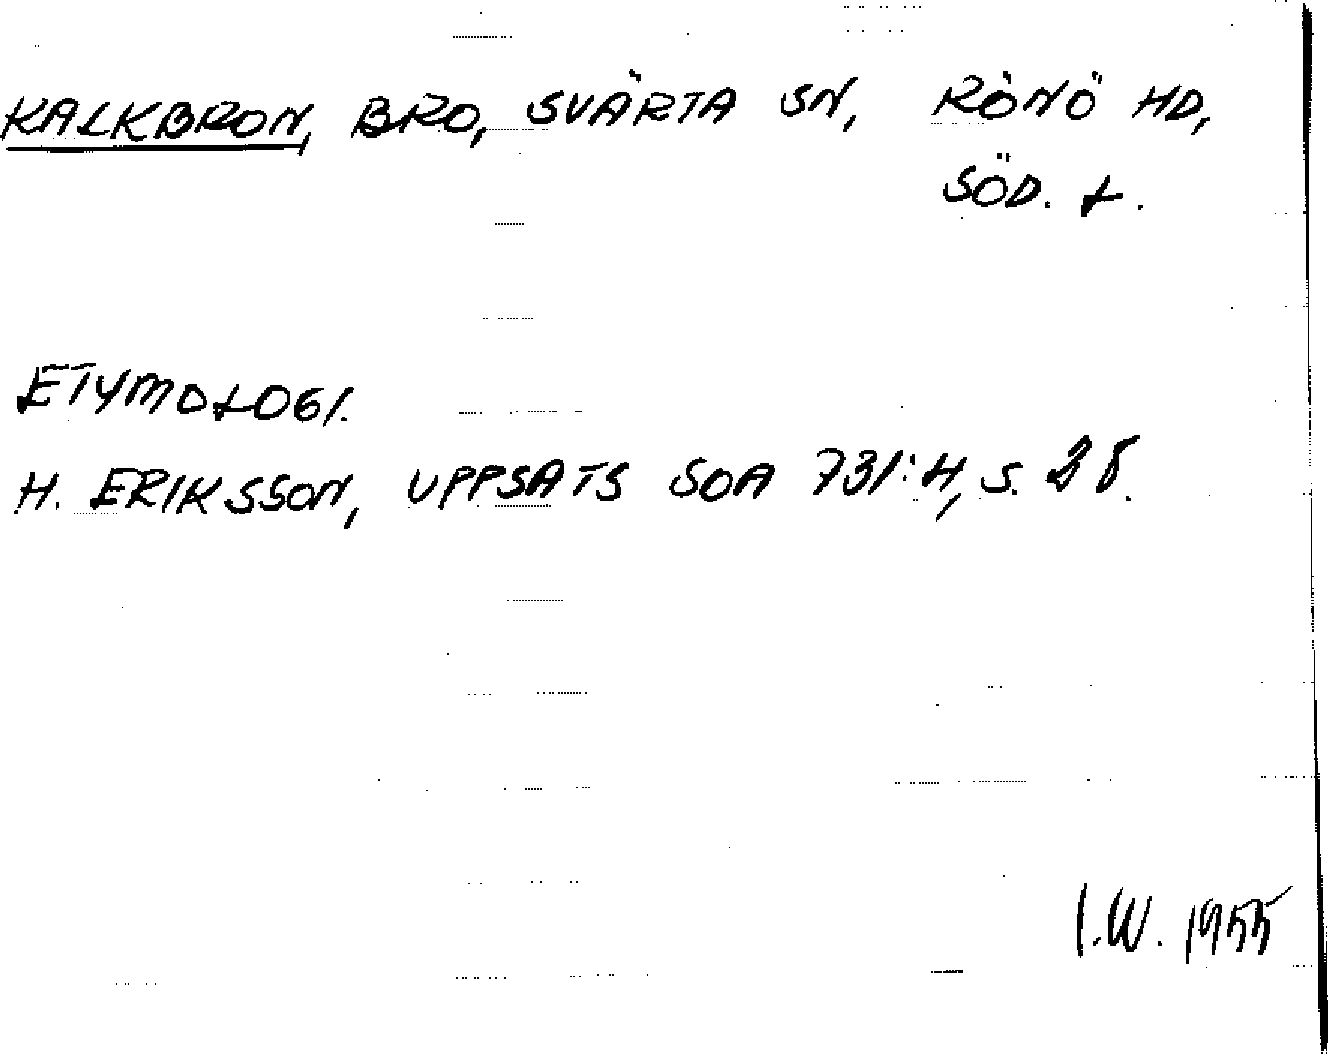 KALKBRON, BRO, SVÄRTA SN, RÖNÖ HD,
SÖD. L.
ETYMOLOGI.
H. ERIKSSON, UPPSATS SOA 731:H, S. 28.
I.W. 1955